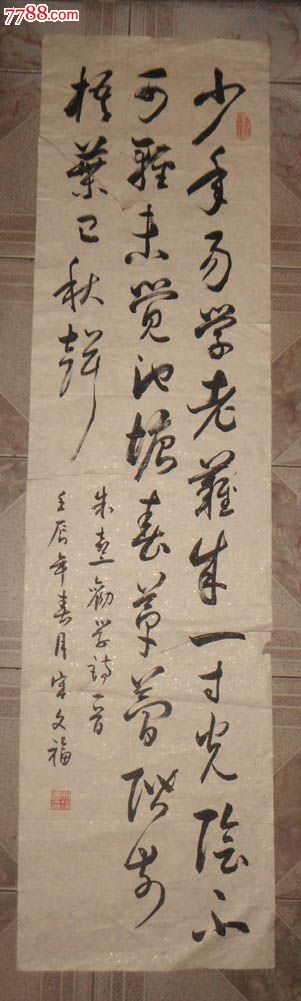 7788.com
少年易学老難成一寸光陰不
可輕未觉池塘春草夢階前
梧葉已秋聲
朱熹勸学詩一首
壬辰年春月宋文福